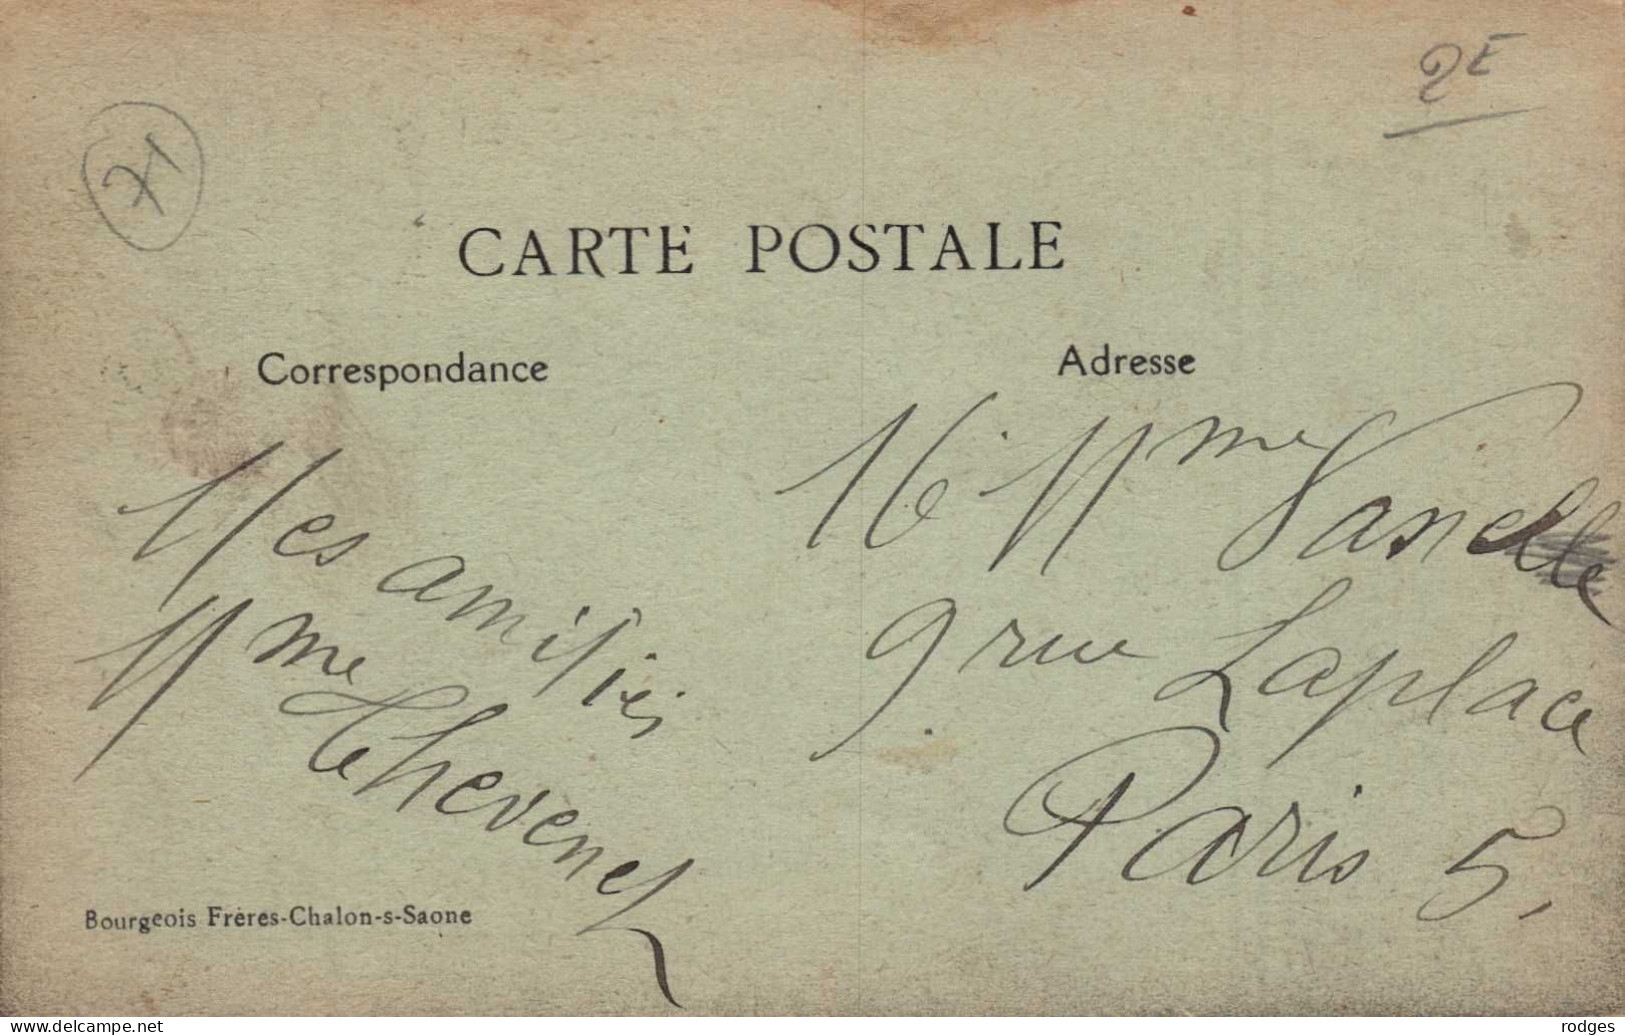 71
2E
CARTE POSTALE
Correspondance
Adresse
Mes amitiés
Mme Thevenet
M. Mme
9 rue Laplace
Paris 5.
Bourgeois Frères-Chalon-s-Saone
www.delcampe.net
rodges